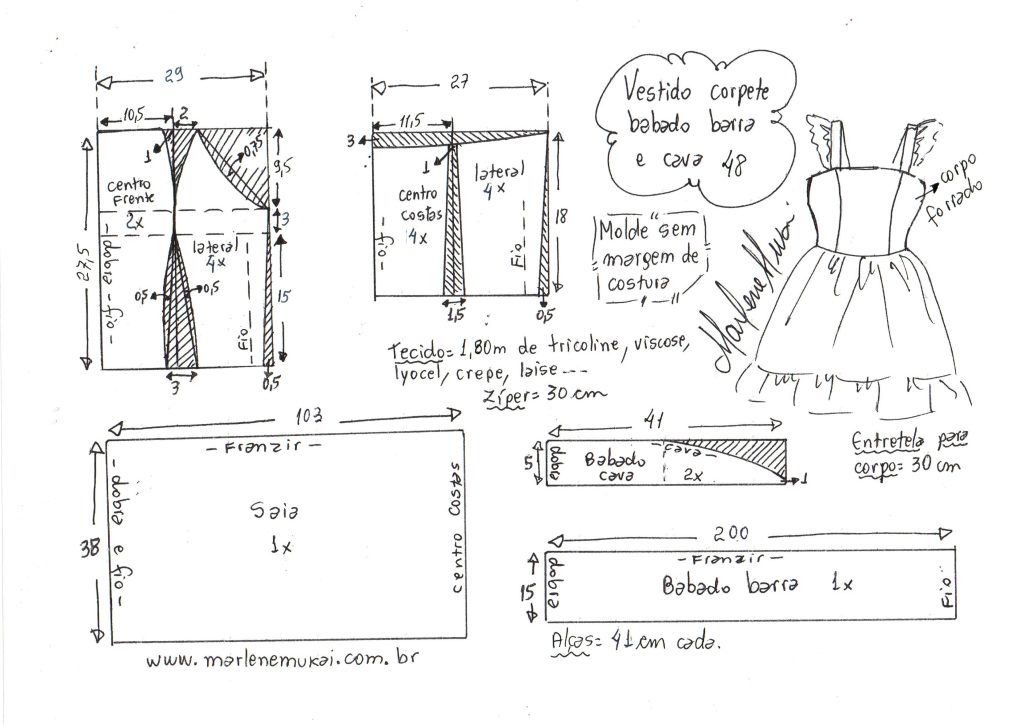 29
10,5
2
1
0,75
9,5
centro
Frente
2x
3
27,5
- dobra - fio -
lateral
4x
0,5
0,5
15
Fio
3
0,5
27
11,5
3
1
lateral
4x
centro
costas
4x
- fio -
Fio
18
1,5
0,5
Vestido corpete
babado barra
e cava 48
Molde sem
margem de
costura
corpo
forrado
Marlene Mukai
Tecido= 1,80m de tricoline, viscose,
lyocel, crepe, laise ---
Zíper= 30 cm
103
- Franzir -
38
- dobra e fio -
Saia
1x
centro costas
41
5
dobra
Babado
cava
- cava -
2x
1
Entretela para
corpo= 30 cm
200
- Franzir -
15
dobra
Babado barra 1x
Fio
Alças= 41 cm cada.
www.marlenemukai.com.br